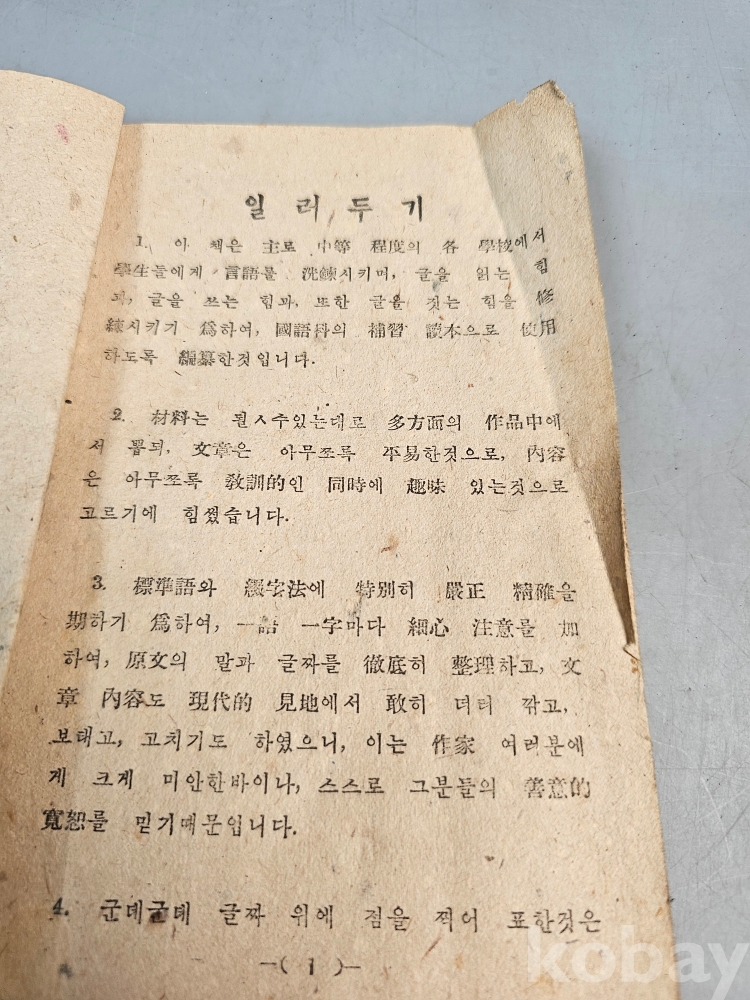 일러두기
1. 이 책은 主로 中等 程度의 各 學校에서
學生들에게 言語를 洗鍊시키며, 글을 읽는 힘
과, 글을 쓰는 힘과, 또한 글을 짓는 힘을 修
練시키기 爲하여, 國語科의 補習 讀本으로 使用
하도록 編纂한것입니다.
2. 材料는 될ㅅ수있는대로 多方面의 作品中에
서 뽑되, 文章은 아무쪼록 平易한것으로, 內容
은 아무쪼록 敎訓的인 同時에 趣味 있는것으로
고르기에 힘썼습니다.
3. 標準語와 綴字法에 特別히 嚴正 精確을
期하기 爲하여, 一語 一字마다 細心 注意를 加
하여, 原文의 말과 글짜를 徹底히 整理하고, 文
章 內容도 現代的 見地에서 敢히 더러 깎고,
보태고, 고치기도 하였으니, 이는 作家 여러분에
게 크게 미안한바이나, 스스로 그분들의 善意的
寬恕를 믿기때문입니다.
4. 군데군데 글짜 위에 점을 찍어 표한것은
—( 1 )—
kobay